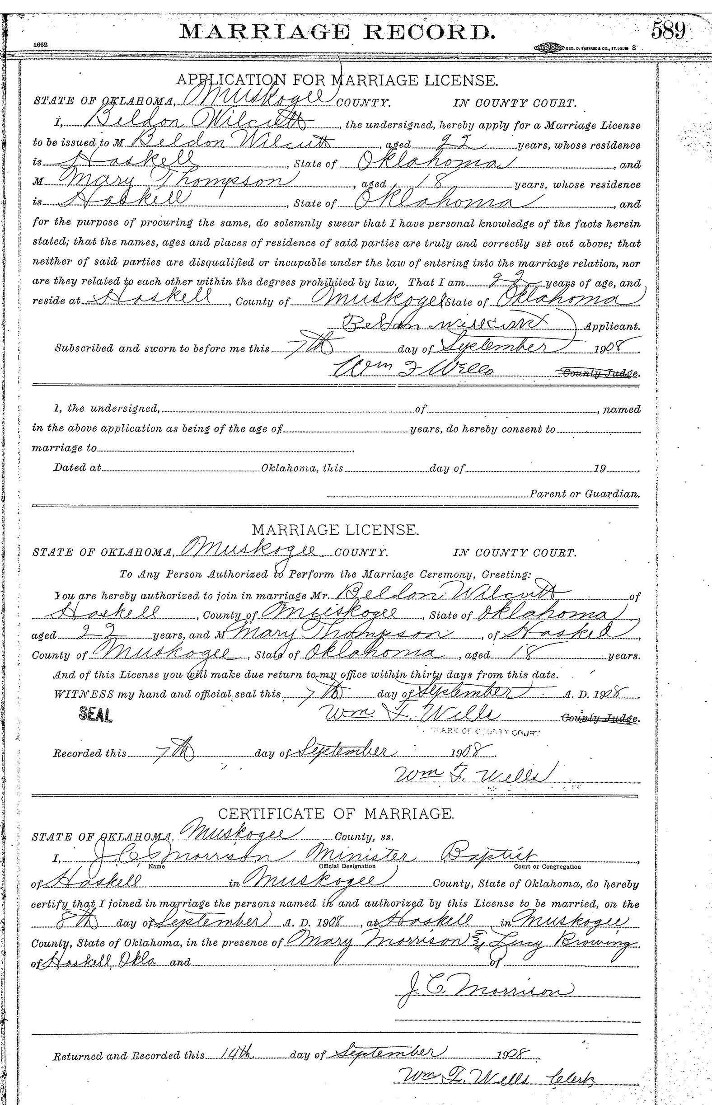 MARRIAGE RECORD.
589
1662
GEO. D. BARNARD & CO., ST. LOUIS S
APPLICATION FOR MARRIAGE LICENSE.
STATE OF OKLAHOMA, Muskogee COUNTY. IN COUNTY COURT.
I, Beldon Wilcutt, the undersigned, hereby apply for a Marriage License
to be issued to M Beldon Wilcutt, aged 22 years, whose residence
is Haskell, State of Oklahoma, and
M Mary Thompson, aged 18 years, whose residence
is Haskell, State of Oklahoma, and
for the purpose of procuring the same, do solemnly swear that I have personal knowledge of the facts herein
stated; that the names, ages and places of residence of said parties are truly and correctly set out above; that
neither of said parties are disqualified or incapable under the law of entering into the marriage relation, nor
are they related to each other within the degrees prohibited by law. That I am 22 years of age, and
reside at Haskell, County of Muskogee State of Oklahoma
Beldon Applicant.
Subscribed and sworn to before me this 7th day of September 1908
Wm F Wells County Judge.
I, the undersigned, of , named
in the above application as being of the age of years, do hereby consent to
marriage to
Dated at Oklahoma, this day of 19
Parent or Guardian.
MARRIAGE LICENSE.
STATE OF OKLAHOMA, Muskogee COUNTY. IN COUNTY COURT.
To Any Person Authorized to Perform the Marriage Ceremony, Greeting:
You are hereby authorized to join in marriage Mr. Beldon Wilcutt of
Haskell, County of Muskogee, State of Oklahoma
aged 22 years, and M Mary Thompson of Haskell,
County of Muskogee, State of Oklahoma, aged 18 years.
And of this License you will make due return to my office within thirty days from this date.
WITNESS my hand and official seal this 7th day of September A. D. 1908
SEAL Wm. F. Wells County Judge.
CLERK OF COUNTY COURT
Recorded this 7th day of September 1908
Wm F. Wells
CERTIFICATE OF MARRIAGE.
STATE OF OKLAHOMA, Muskogee County, ss.
I, J C Morrison Minister Baptist,
Name Official Designation Court or Congregation
of Haskell in Muskogee County, State of Oklahoma, do hereby
certify that I joined in marriage the persons named in and authorized by this License to be married, on the
8th day of September A. D. 1908, at Haskell in Muskogee
County, State of Oklahoma, in the presence of Mary Morrison & Lucy Browing
of Haskell Okla and of
J. C Morrison
Returned and Recorded this 14th day of September 1908
Wm. F. Wells Clerk